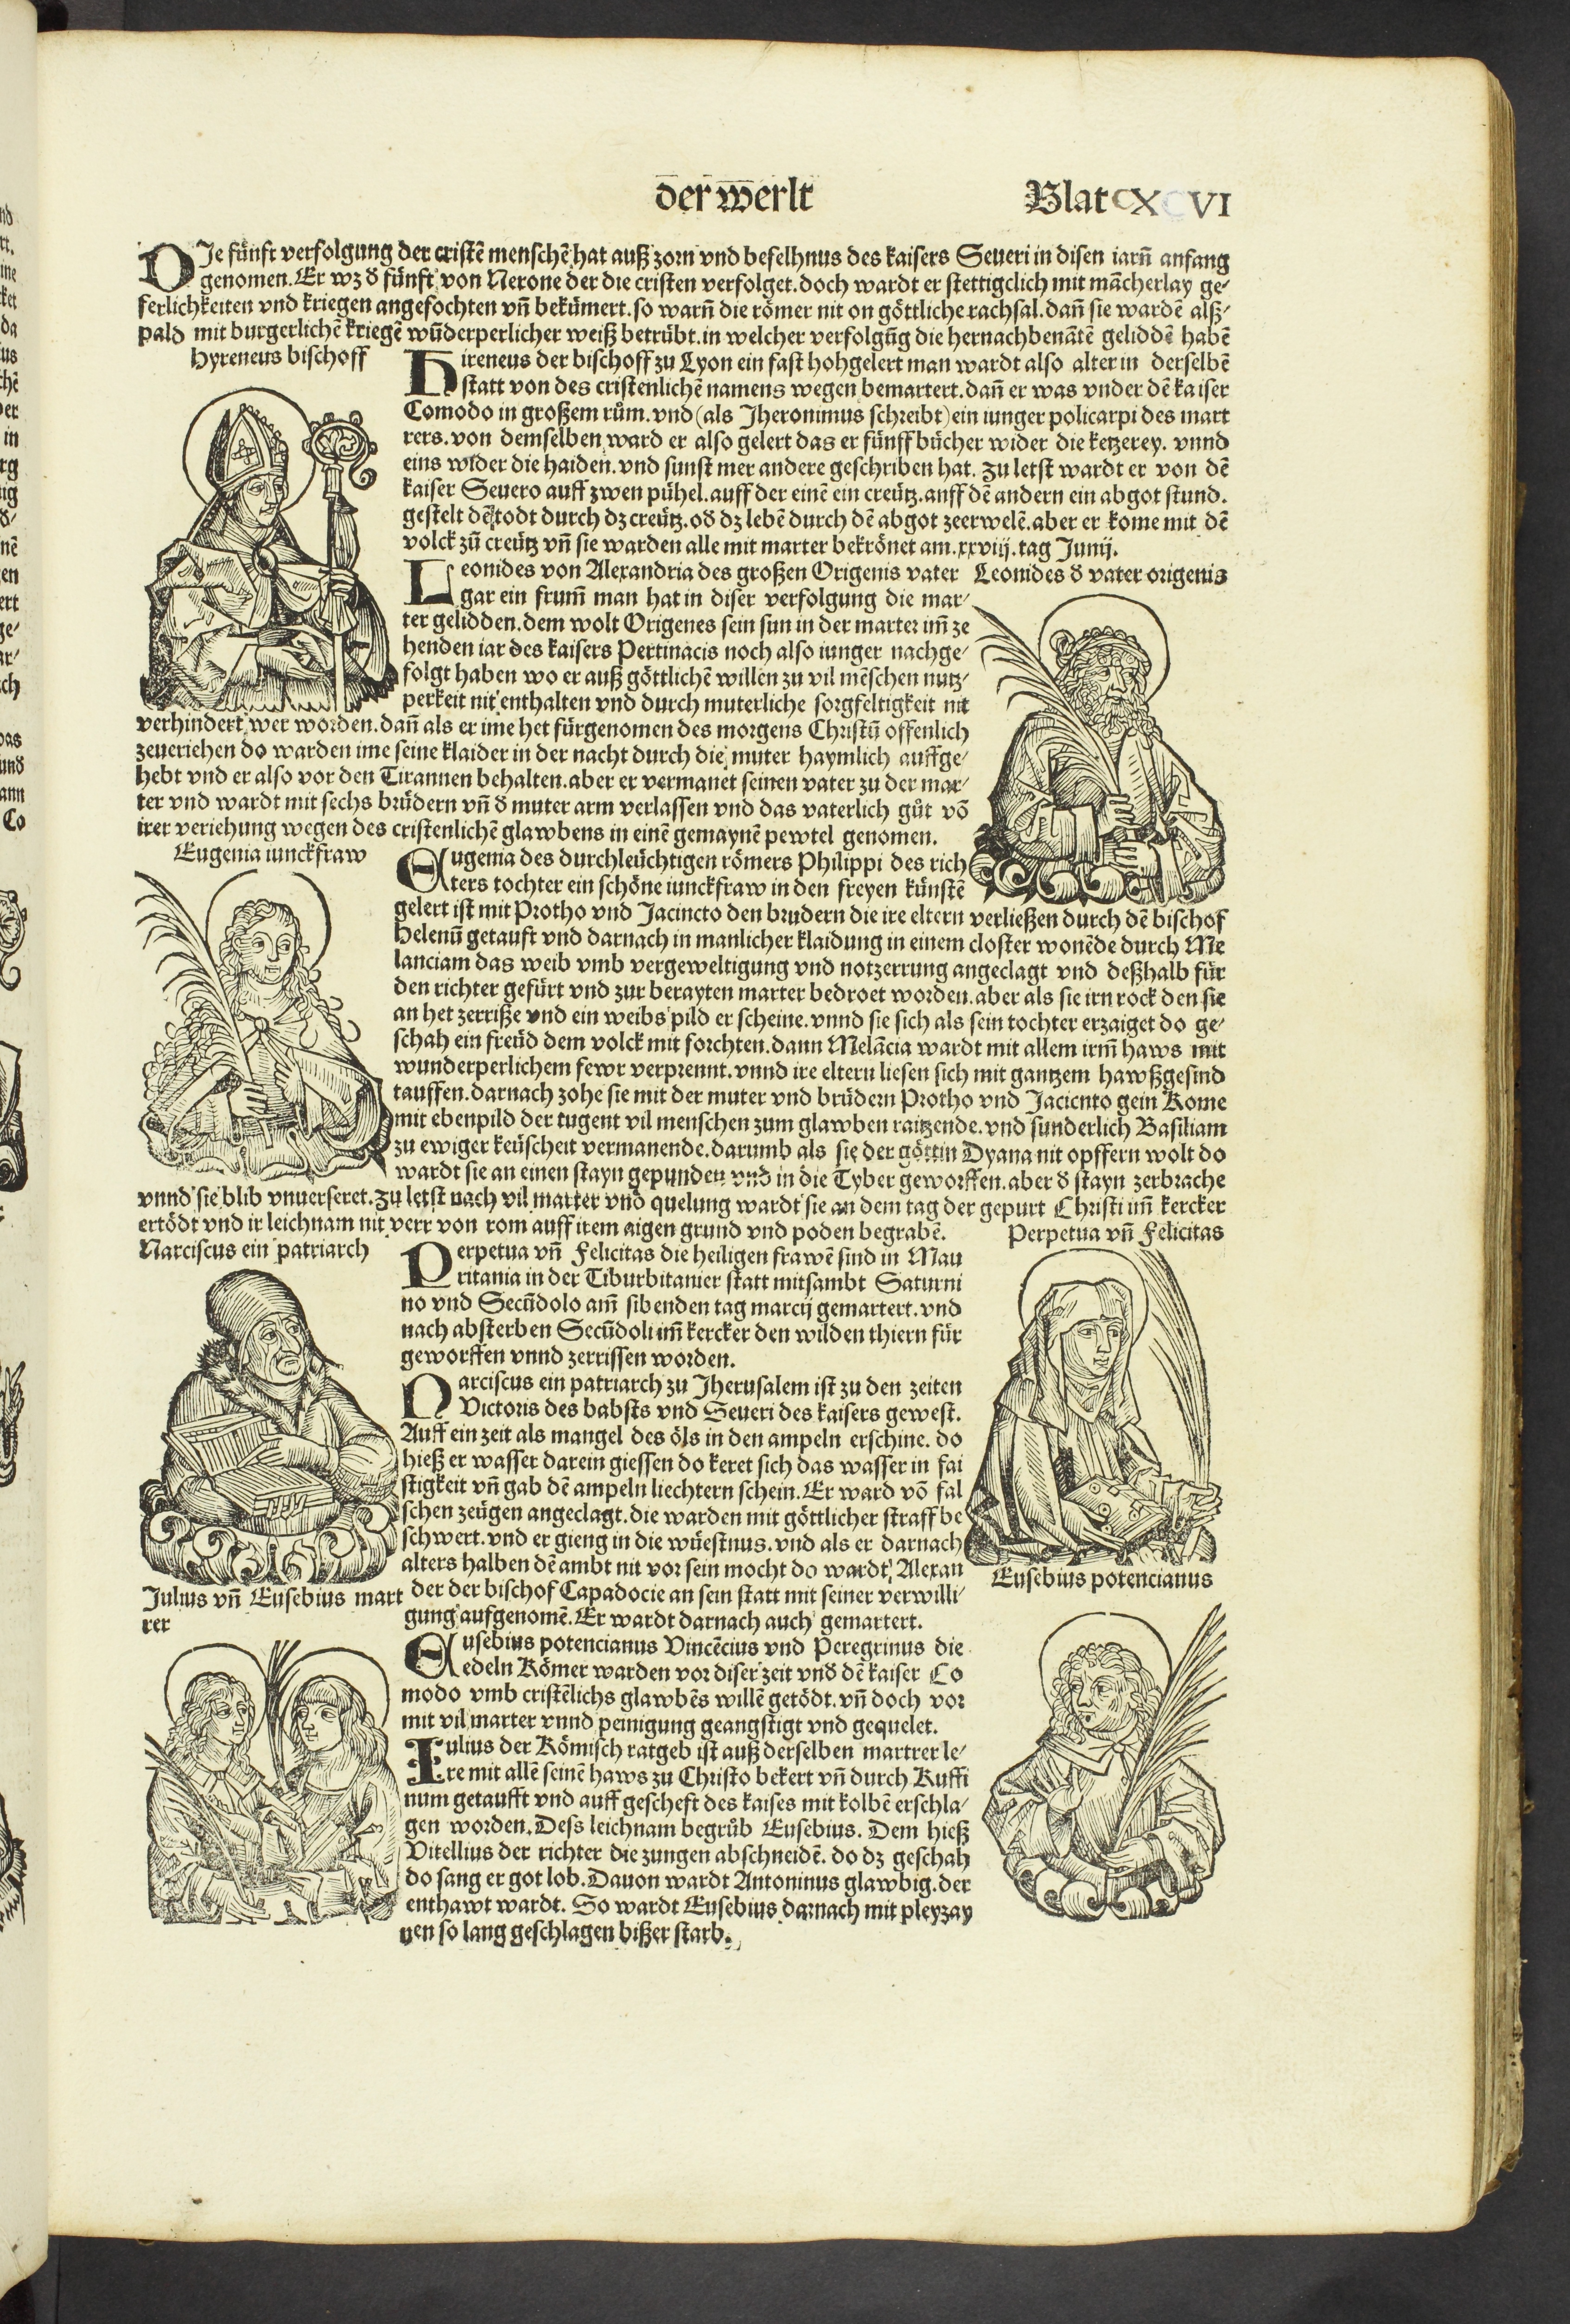 der werlt
Blat CXCVI
DIe fünft verfolgung der cristē menschē hat auß zorn vnd befelhnus des kaisers Seueri in disen iarñ anfang
genomen. Er wz d̕ fünft von Nerone der die cristen verfolget. doch wardt er stettigclich mit mācherlay ge-
ferlichkeiten vnd kriegen angefochten vñ bekümert. so warñ die römer nit on göttliche rachsal. dañ sie wardē alß-
pald mit burgerlichē kriegē wūderperlicher weiß betrübt. in welcher verfolgūg die hernachbenātē geliddē habē
Hyreneus bischoff
Hireneus der bischoff zu Lyon ein fast hohgelert man wardt also alter in derselbē
statt von des cristenlichē namens wegen bemartert. dañ er was vnder dē kaiser
Comodo in großem rům. vnd (als Jheronimus schreibt) ein iunger policarpi des mart
rers. von demselben ward er also gelert das er fünff bücher wider die ketzerey. vnnd
eins wider die haiden. vnd sunst mer andere geschriben hat. zu letst wardt er von dē
kaiser Seuero auff zwen pühel. auff der einē ein creütz. anff dē andern ein abgot stund.
gestelt dē todt durch dz creütz. od̕ dz lebē durch dē abgot zeerwelē. aber er kome mit dē
volck zū creütz vñ sie warden alle mit marter bekrönet am .xxviij. tag Junij.
Leonides von Alexandria des großen Origenis vater
gar ein frum̄ man hat in diser verfolgung die mar-
ter gelidden. dem wolt Origenes sein sun in der marter im̄ ze
henden iar des kaisers Pertinacis noch also iunger nachge-
folgt haben wo er auß göttlichē willen zu vil mēschen nutz-
perkeit nit enthalten vnd durch muterliche sorgfeltigkeit nit
verhindert wer worden. dañ als er ime het fürgenomen des morgens Christū offenlich
zeueriehen do warden ime seine klaider in der nacht durch die muter haymlich auffge-
hebt vnd er also vor den Tirannen behalten. aber er vermanet seinen vater zu der mar-
ter vnd wardt mit sechs brüdern vñ d̕ muter arm verlassen vnd das vaterlich gůt vō
irer veriehung wegen des cristenlichē glawbens in einē gemaynē pewtel genomen.
Leonides d̕ vater origenis
Eugenia iunckfraw
Eugenia des durchleüchtigen römers Philippi des rich
ters tochter ein schöne iunckfraw in den freyen künstē
gelert ist mit Protho vnd Jacincto den brudern die ire eltern verließen durch dē bischof
Helenū getauft vnd darnach in manlicher klaidung in einem closter wonēde durch Me
lanciam das weib vmb vergeweltigung vnd notzerrung angeclagt vnd deßhalb für
den richter gefürt vnd zur berayten marter bedroet worden. aber als sie irn rock den sie
an het zerriße vnd ein weibs pild er scheine. vnnd sie sich als sein tochter erzaiget do ge-
schah ein freüd dem volck mit forchten. dann Melācia wardt mit allem irm̄ haws mit
wunderperlichem fewr verprennt. vnnd ire eltern liesen sich mit gantzem hawßgesind
tauffen. darnach zohe sie mit der muter vnd brüdern Protho vnd Jacicnto gein Rome
mit ebenpild der tugent vil menschen zum glawben raitzende. vnd sunderlich Basiliam
zu ewiger keüscheit vermanende. darumb als sie der göttin Dyana nit opffern wolt do
wardt sie an einen stayn gepunden vnd in die Tyber geworffen. aber d̕ stayn zerbrache
vnnd sie blib vnuerseret. zu letst nach vil marter vnd quelung wardt sie an dem tag der gepurt Christi im̄ kercker
ertödt vnd ir leichnam nit verr von rom auff irem aigen grund vnd poden begrabē.
Perpetua vñ Felicitas
Narciscus ein patriarch
Perpetua vñ Felicitas die heiligen frawē sind in Mau
ritania in der Tiburbitanier statt mitsambt Saturni
no vnd Secūdolo am̄ sibenden tag marcij gemartert. vnd
nach absterben Secūdoli im̄ kercker den wilden thiern für
geworffen vnnd zerrissen worden.
Narciscus ein patriarch zu Jherusalem ist zu den zeiten
Victoris des babsts vnd Seueri des kaisers gewest.
Auff ein zeit als mangel des öls in den ampeln erschine. do
hieß er wasser darein giessen do keret sich das wasser in fai
stigkeit vñ gab dē ampeln liechtern schein. Er ward vō fal
schen zeügen angeclagt. die warden mit göttlicher straff be
schwert. vnd er gieng in die wüestnus. vnd als er darnach
alters halben dē ambt nit vor sein mocht do wardt Alexan
der der bischof Capadocie an sein statt mit seiner verwilli-
gung aufgenomē. Er wardt darnach auch gemartert.
Eusebius potencianus
Julius vñ Eusebius mart
rer
Eusebius potencianus Vincēcius vnd Peregrinus die
edeln Römer warden vor diser zeit vnd̕ dē kaiser Co
modo vmb cristēlichs glawbēs willē getödt. vñ doch vor
mit vil marter vnnd peinigung geangstigt vnd gequelet.
Iulius der Römisch ratgeb ist auß derselben martrer le-
re mit allē seinē haws zu Christo bekert vñ durch Ruffi
num getaufft vnd auff gescheft des kaises mit kolbē erschla-
gen worden. Dess leichnam begrůb Eusebius. Dem hieß
Vitellius der richter die zungen abschneidē. do dz geschah
do sang er got lob. Dauon wardt Antoninus glawbig. der
enthawt wardt. So wardt Eusebius darnach mit pleyzay
nen so lang geschlagen bißer starb.